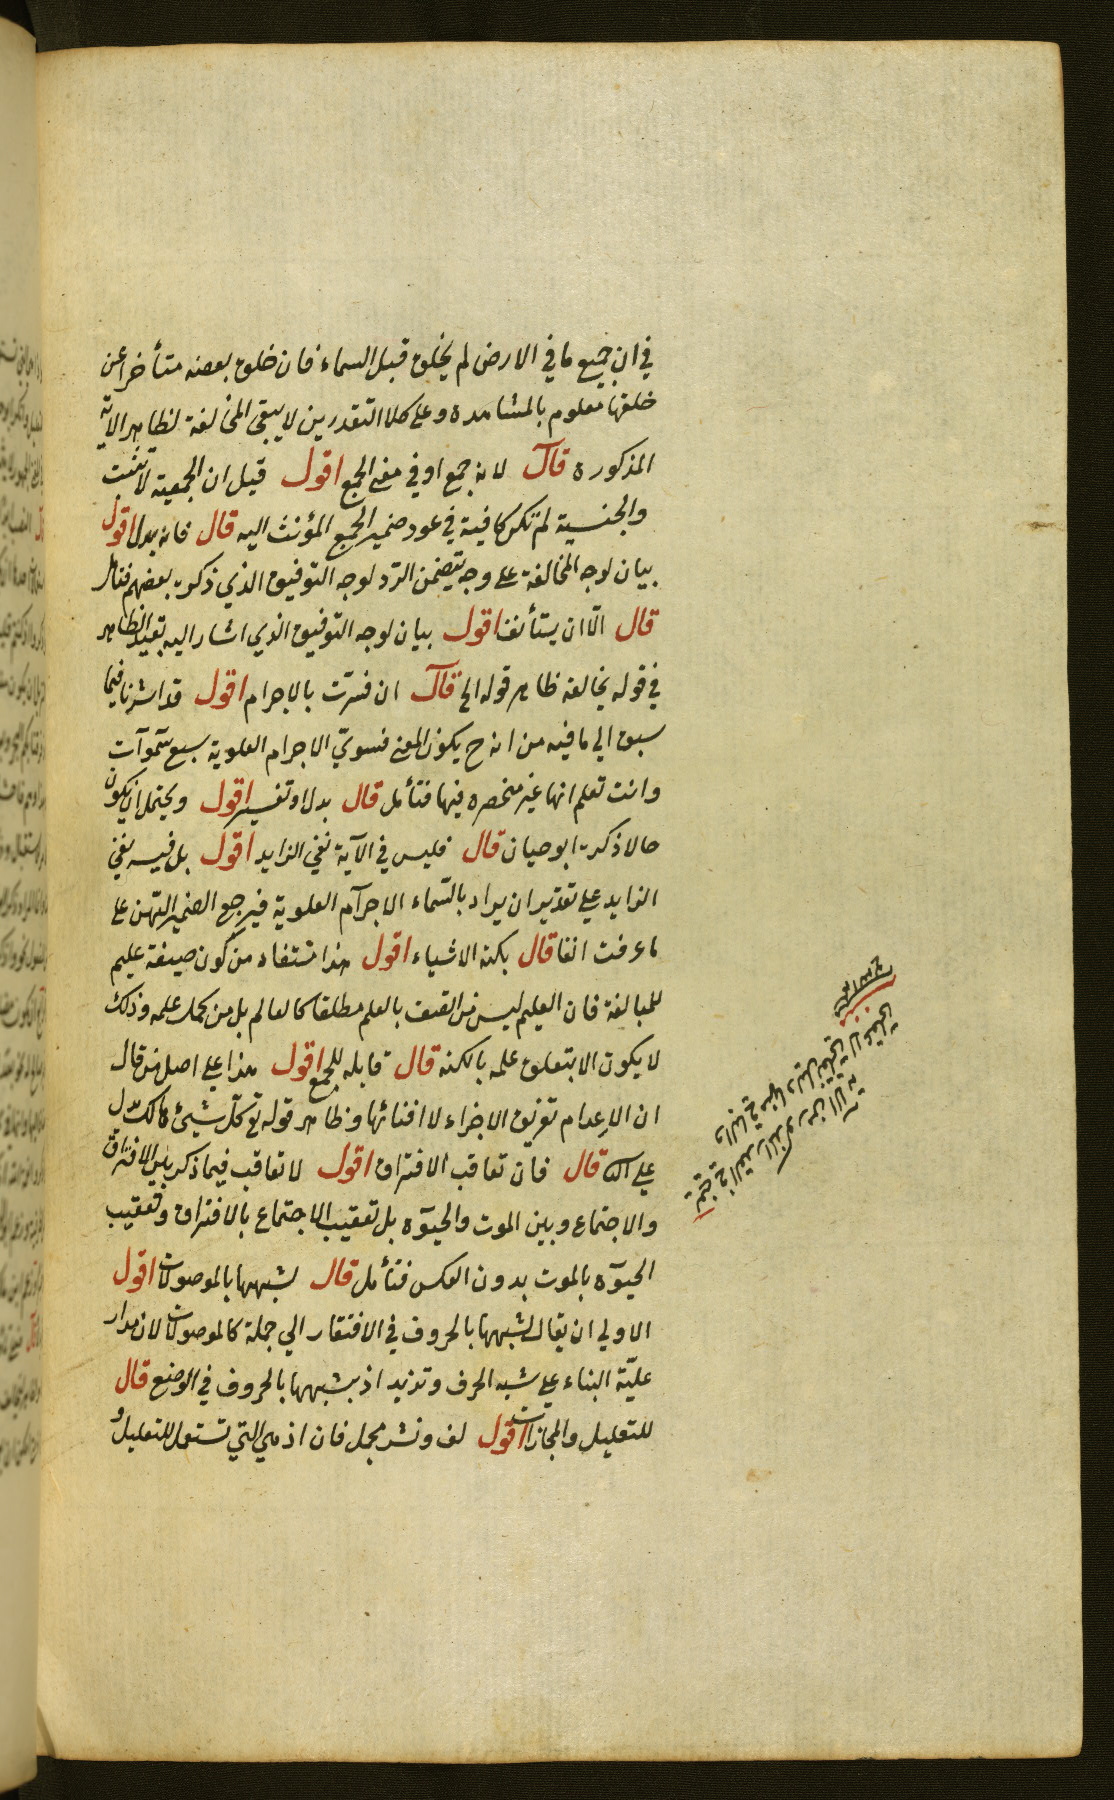 في ان جميع ما في الارض لم يخلق قبل السماء فان خلق بعضه متأخرا عن
خلقها معلوم بالمشاهدة وعلى كلا التقدرين لا يبقى المخالفة لظاهر الاية
المذكورة قال لانه جمع او في معنى الجمع اقول قيل ان الجمعية لا تثبت
والجنسية لم تكن كافية في عود ضمير الجمع المؤنث اليه قال فانه يدل اقول
بيان لوجه المخالفة على وجه يتضمن الرد لوجه التوفيق الذي ذكره بعضهم فتأمل
قال الا ان يستأنف اقول بيان لوجه التوفيق الذي اشار اليه بقيد الظاهر
في قوله يخالف ظاهر قوله الخ قال ان فسرت بالاجرام اقول قد اشرنا فيما
سبق الى ما فيه من انه ح يكون المعنى فسوي الاجرام العلوية سبع سموآت
وانت تعلم انها غير منحصره فيها فتأمل قال بدل او تفسير اقول ويحتمل ان يكون
حالا ذكره ابو حيان قال فليس في الآية نفي الزايد اقول بل فيه نفي
الزايد على تقدير ان يراد بالسماء الاجرآم العلوية فيرجع الضمير اليهن على
ما عرفت انفا قال بكنه الاشياء اقول هذا مستفاد من كون صيغة عليم
للمبالغة فان العليم ليس من اتصف بالعلم مطلقا كالعالم بل من كمل علمه وذلك
لا يكون الا بتعلق علمه بالكنه قال قابله للجمع اقول هذا على اصل من قال
ان الاعدام تفريق الاجزاء لا افنائها وظاهر قوله تع كل شيئ هالك يدل
على الثا قال فان تعاقب الافتراق اقول لا تعاقب فيما ذكر بين الافتراق
والاجتماع وبين الموت والحيوٓة بل تعقيب الاجتماع بالافتراق وتعقيب
الحيوٓة بالموت بدون العكس فتأمل قال لشبهها بالموصولات اقول
الاولى ان يقال لشبهها بالحروف في الافتقار الى جملة كالموصولات لان مدار
عليّة البناء على شبه الحرف وتزيد اذ بشبهها بالحروف في الوضع قال
للتعليل والمجازات اقول لف ونشر مجمل فان اذ هي التي تستعمل للتعليل و